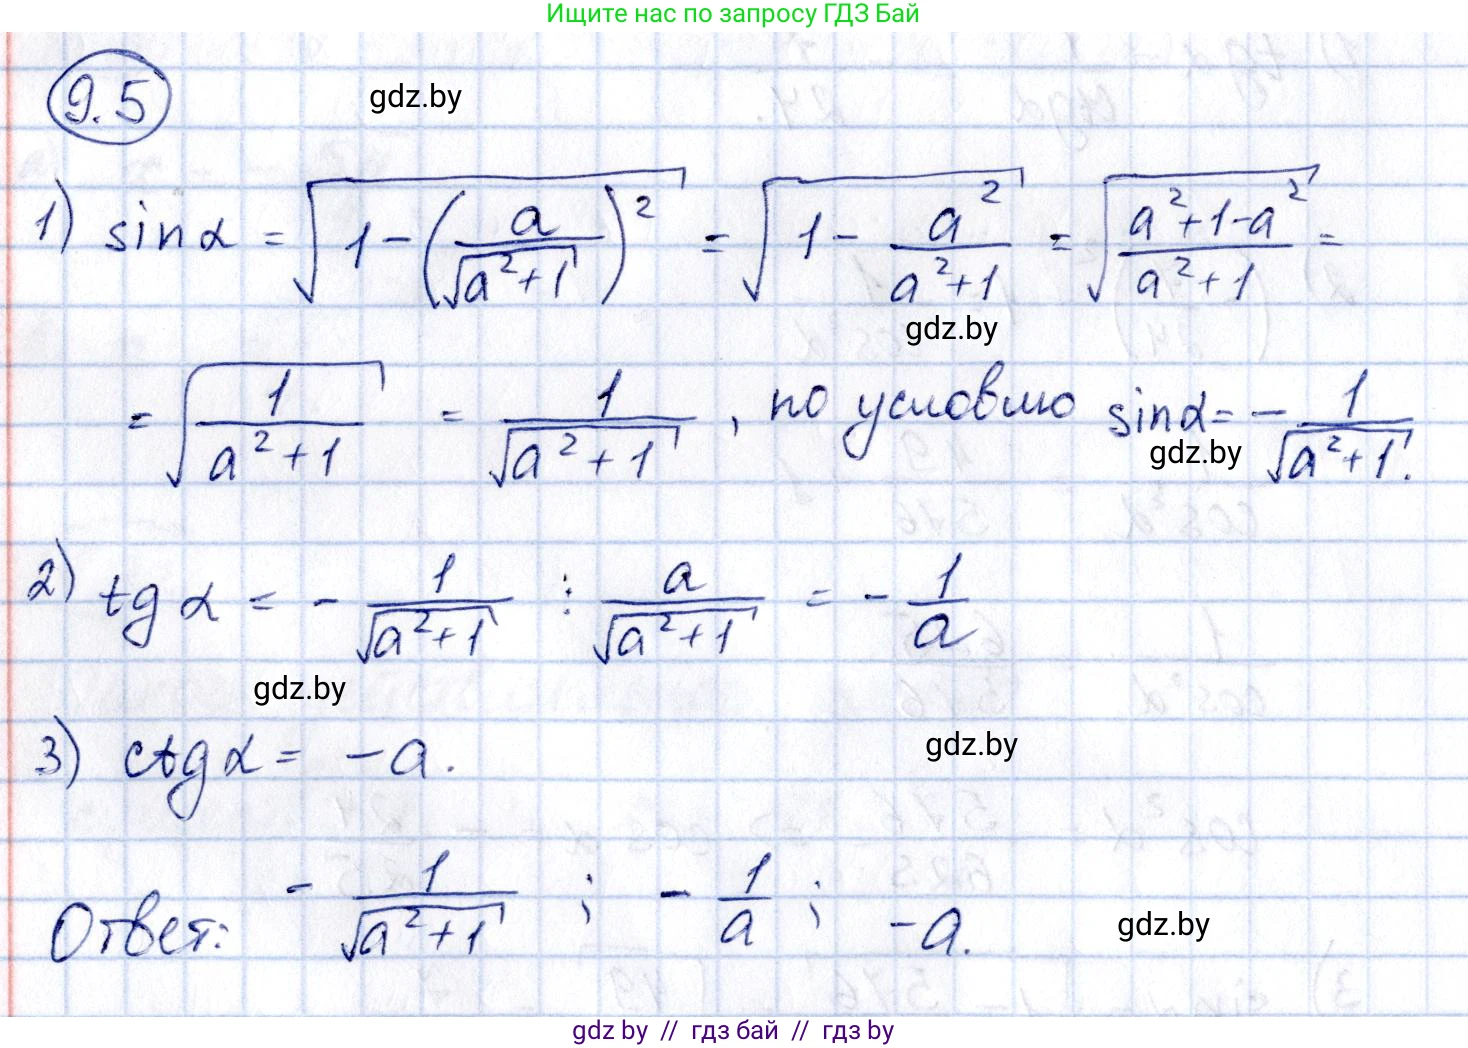 Ищите нас по запросу ГДЗ Бай
9.5
gdz.by
1) sin α = √(1 - (a/√(a²+1))²) = √(1 - a²/(a²+1)) = √((a²+1-a²)/(a²+1)) =
gdz.by
= √(1/(a²+1)) = 1/√(a²+1), по условию sin α = - 1/√(a²+1).
gdz.by
2) tg α = - 1/√(a²+1) : a/√(a²+1) = - 1/a
gdz.by
3) ctg α = -a.
gdz.by
Ответ: - 1/√(a²+1) ; - 1/a ; -a.
gdz.by
gdz.by // гдз бай // гдз by